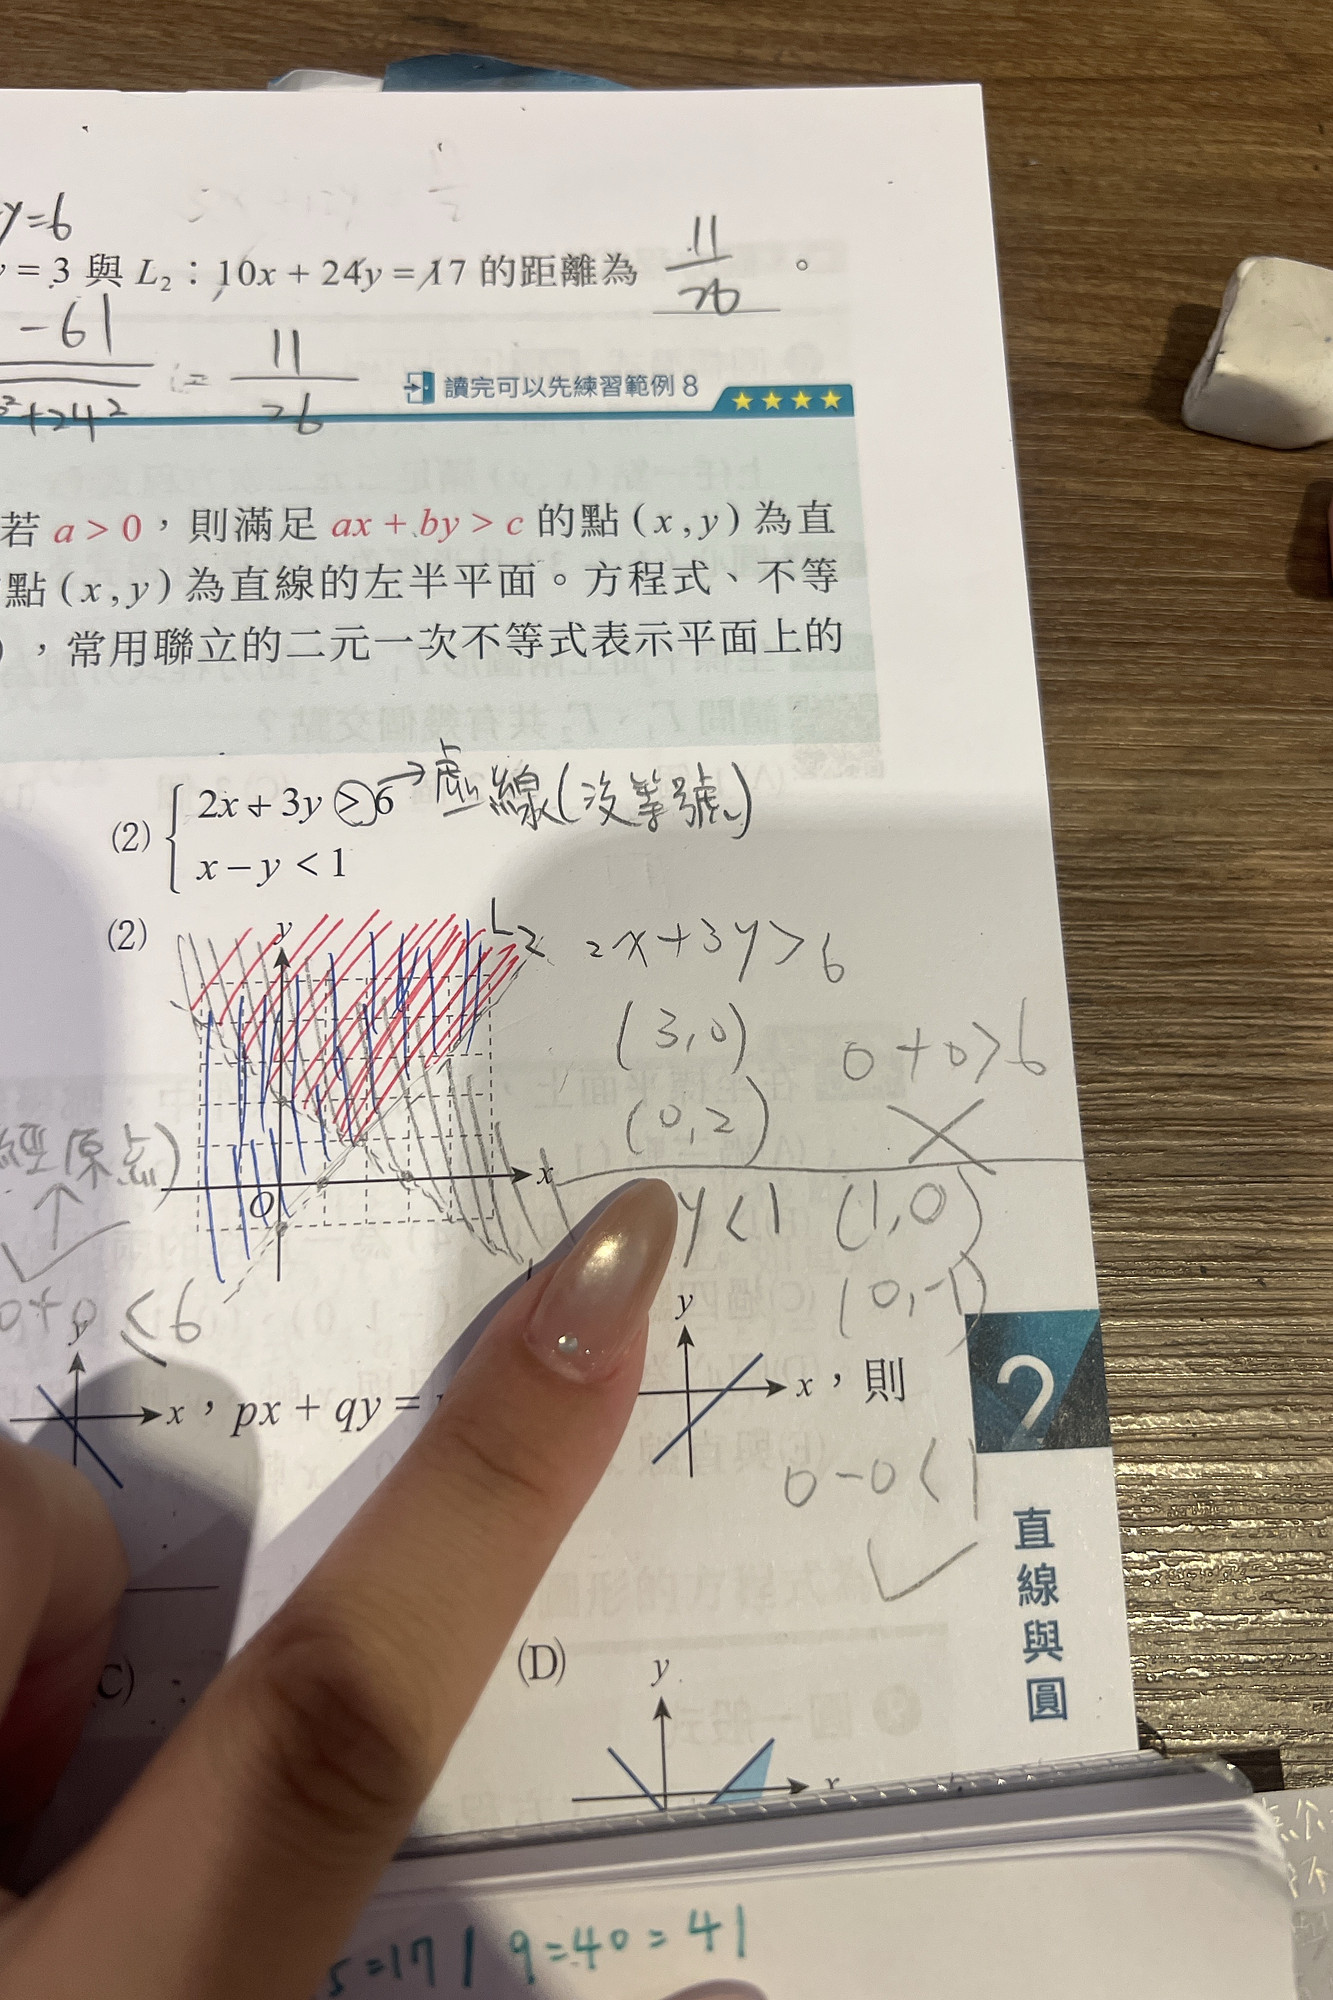 y=6
= 3 與 L₂：10x + 24y = 17 的距離為 11/26 。
-6|
= 11/26
²+24²
讀完可以先練習範例 8
若 a > 0，則滿足 ax + by > c 的點 (x, y) 為直
點 (x, y) 為直線的左半平面。方程式、不等
)，常用聯立的二元一次不等式表示平面上的
(2) { 2x + 3y > 6 → 虛線(沒等號)
x − y < 1
(2)
y
L2
2x+3y>6
(3,0)
0+0>6
(0,2)
×
x
O
經原点)
↑
y<1 (1,0)
(0,-1)
0+0≤6
y
y
x，px + qy =
x，則
2
0-0<1
直線與圓
C)
(D)
y
x
5=17 / 9=40=41